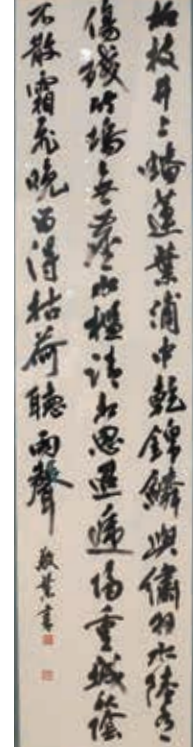 柳枝井上蟠蓮葉浦中乾錦鱗與繡羽水陸有
傷殘竹塢無塵水檻清相思迢遞隔重城秋陰
不散霜飛晚留得枯荷聽雨聲
書